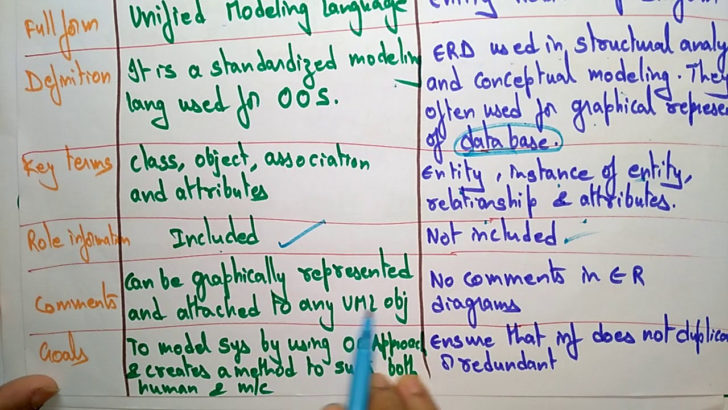 Full form
Unified Modeling language
Definition
It is a standardized modeling
lang used for OOS.
ERD used in structural analy
and conceptual modeling. They
often used for graphical represe
of database.
Key terms
class, object, association
and attributes
Entity, instance of entity,
relationship & attributes.
Role information
Included ✓
Not included ✓
Comments
Can be graphically represented
and attached to any UML obj
No comments in ER
diagrams
Goals
To model sys by using OO Approac
& creates a method to both
human & m/c
Ensure that inf does not duplica
redundant